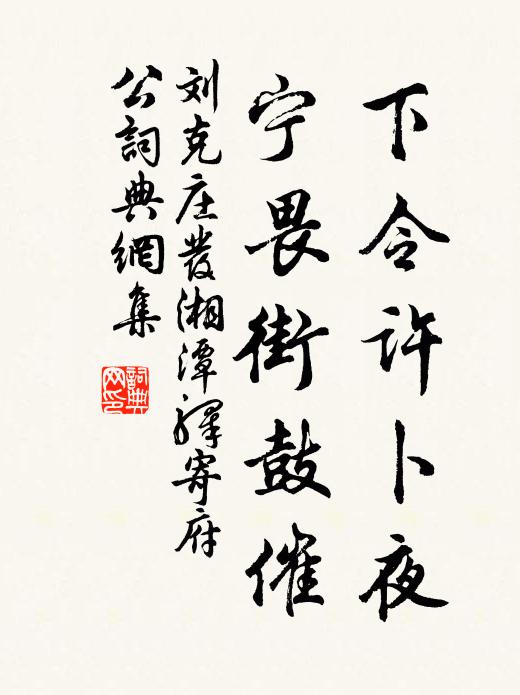 下令许卜夜
宁畏街鼓催
刘克庄發湘潭驛寄府
公詞典網集
詞典
网印